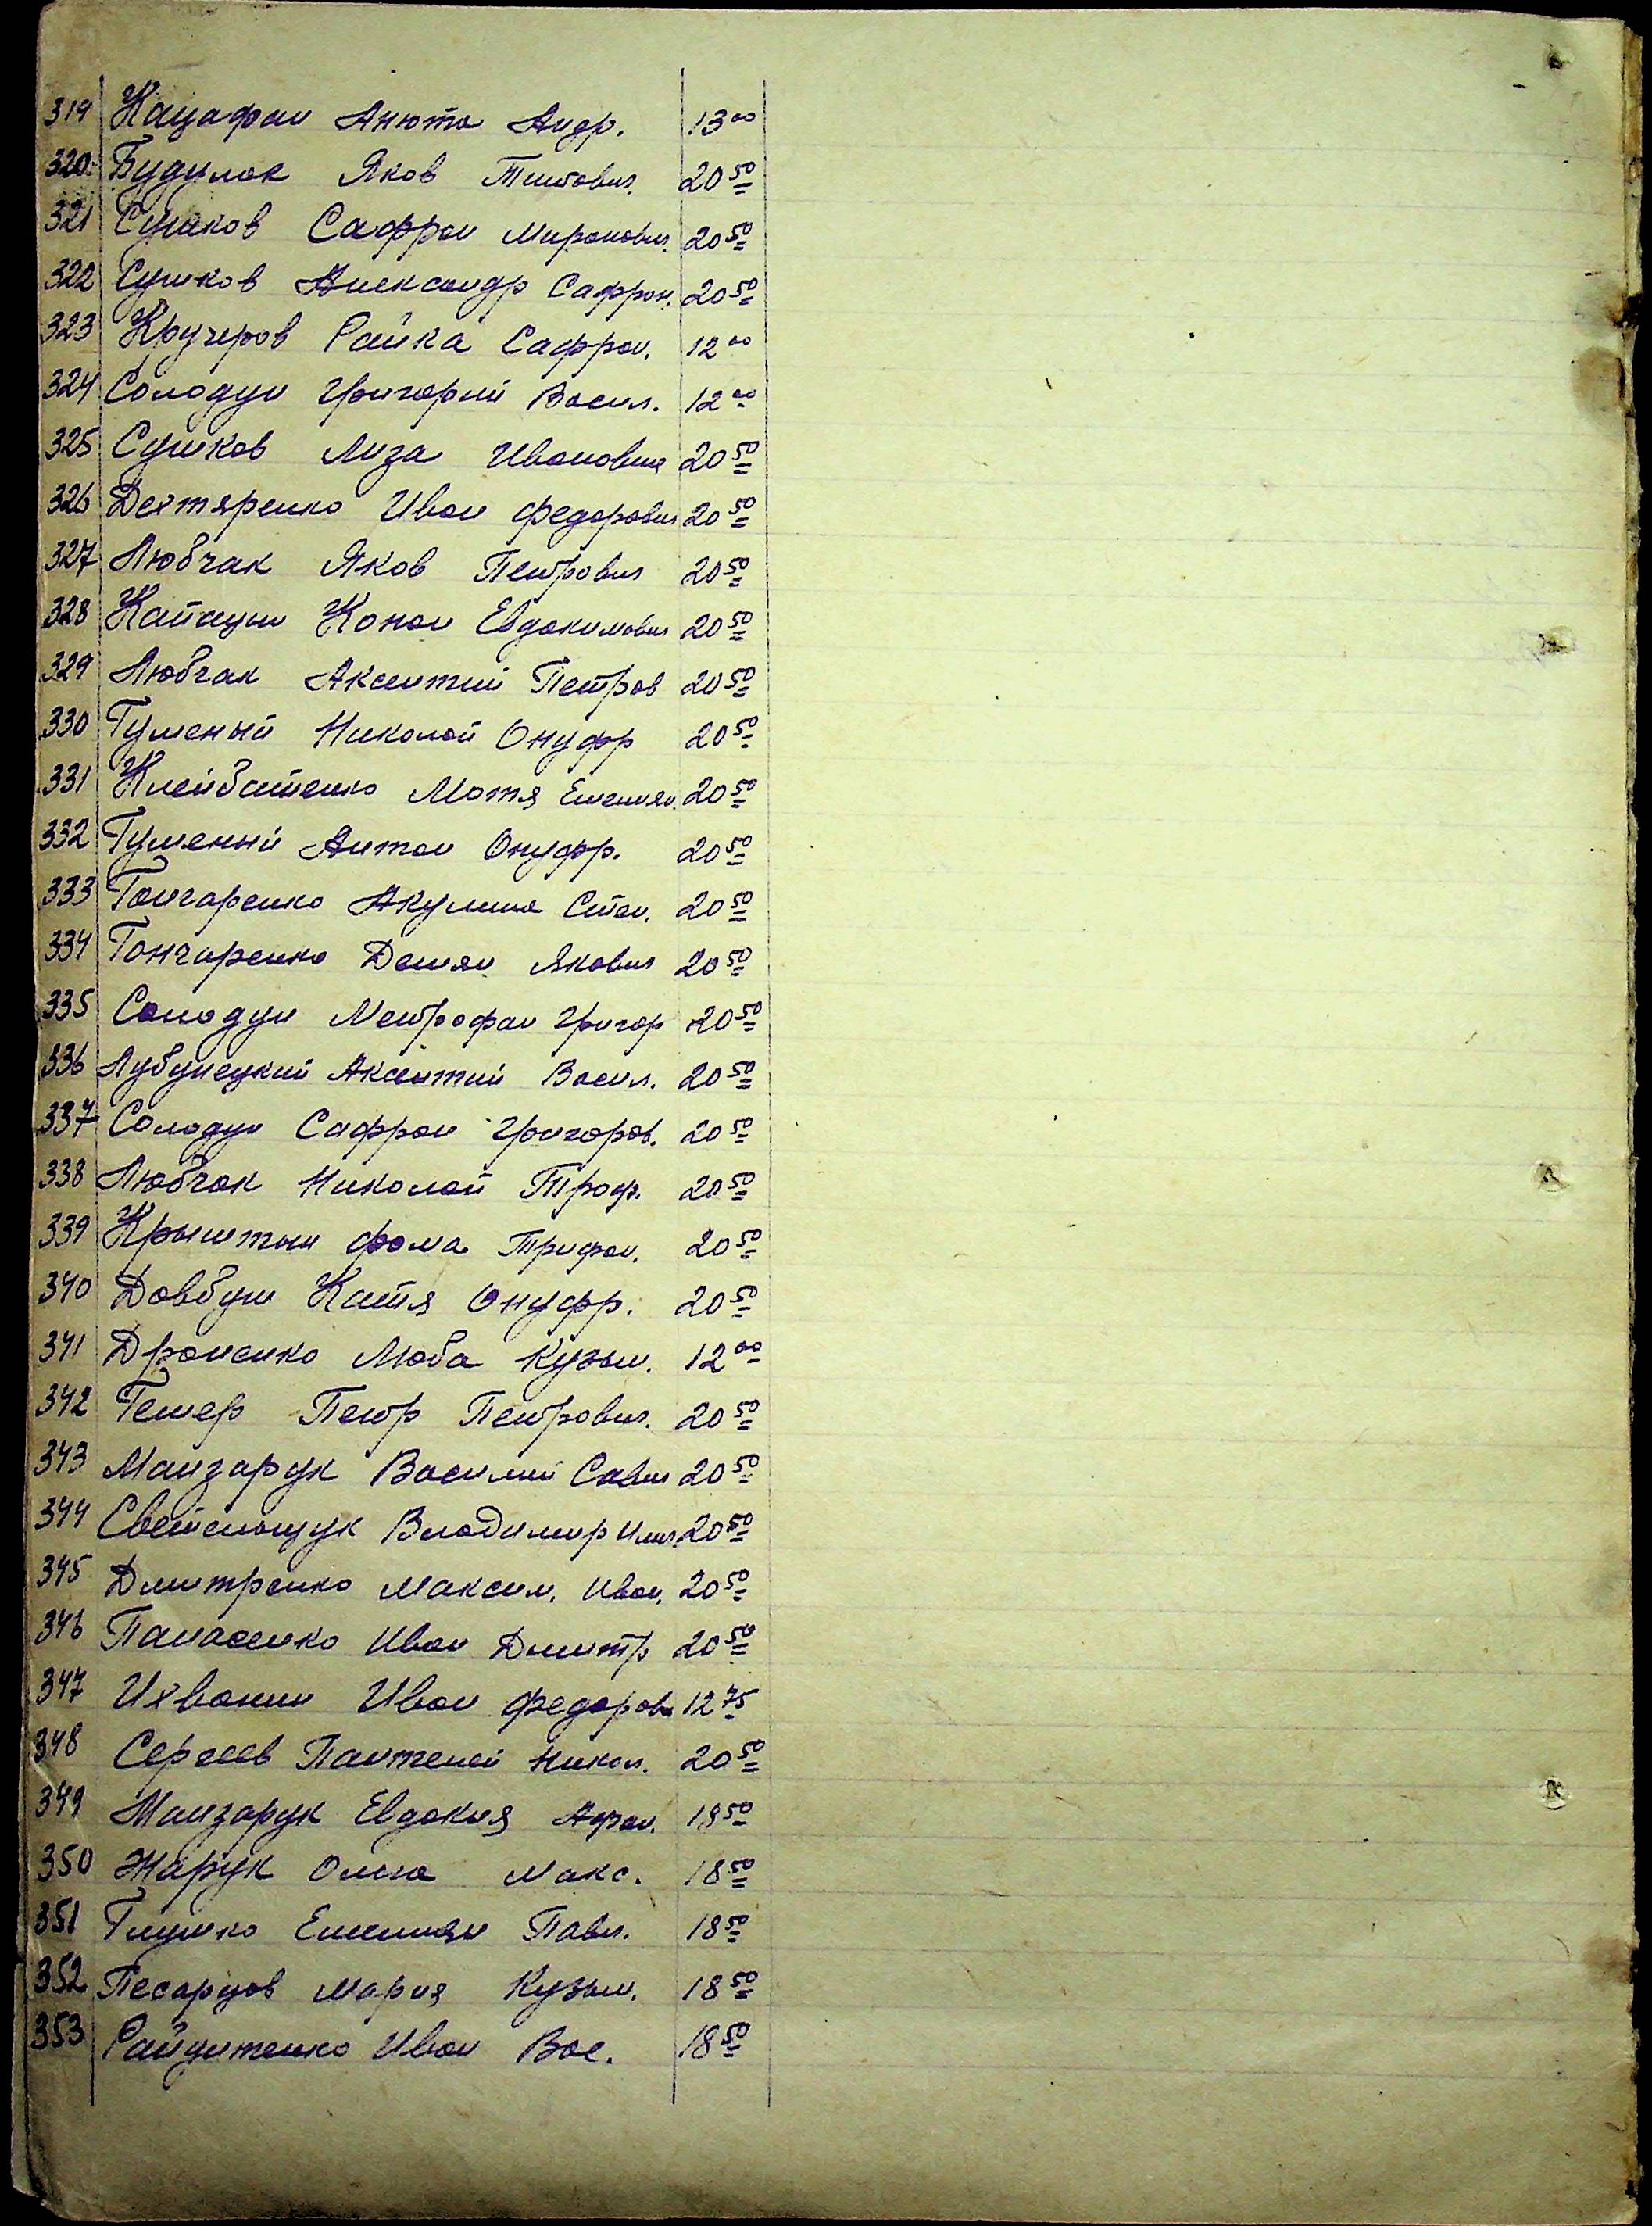 319 Кацафан Анюта Андр. 13 00
320. Будулак Яков Титович. 20 50
321 Сушков Сафрон Миронович. 20 50
322 Сушков Александр Сафрон. 20 50
323 Кручеров Райка Сафрон. 12 00
324 Солодун Григорий Васил. 12 00
325 Сушков Лиза Ивановна 20 50
326 Дехтяренко Иван Федорович 20 50
327 Любчак Яков Петрович 20 50
328 Капацин Конон Евдокимович 20 50
329 Любчак Аксентий Петров 20 50
330 Гуменый Николай Онуфр 20 50
331 Клейбатенко Мотя Емельян. 20 50
332 Гуменый Антон Онуфр. 20 50
333 Гончаренко Акулина Степ. 20 50
334 Гончаренко Демян Якович 20 50
335 Солодун Метрофан Григор 20 50
336 Лубунецкий Аксентий Васил. 20 50
337 Солодун Сафрон Григоров. 20 50
338 Любчак Николай Троф. 20 50
339 Крыштын Фома Трифон. 20 50
340 Довбуш Катя Онуфр. 20 50
341 Дроненко Люба Кузьм. 12 00
342 Гемер Петр Петрович. 20 50
343 Манзарук Василий Савич 20 50
344 Владимир 20 50
345 Дмитренко Максим. Иван. 20 50
346 Панасенко Иван Дмитр 20 50
347 Ихванин Иван Федоров 12 75
348 Сергеев Пантелей Никол. 20 50
349 Манзарук Евдокия Афан. 18 50
350 Жарук Ольга Макс. 18 50
351 Глушко Емельян Павл. 18 50
352 Песарцов Мария Кузьм. 18 50
353 Райдитенко Иван Вас. 18 50